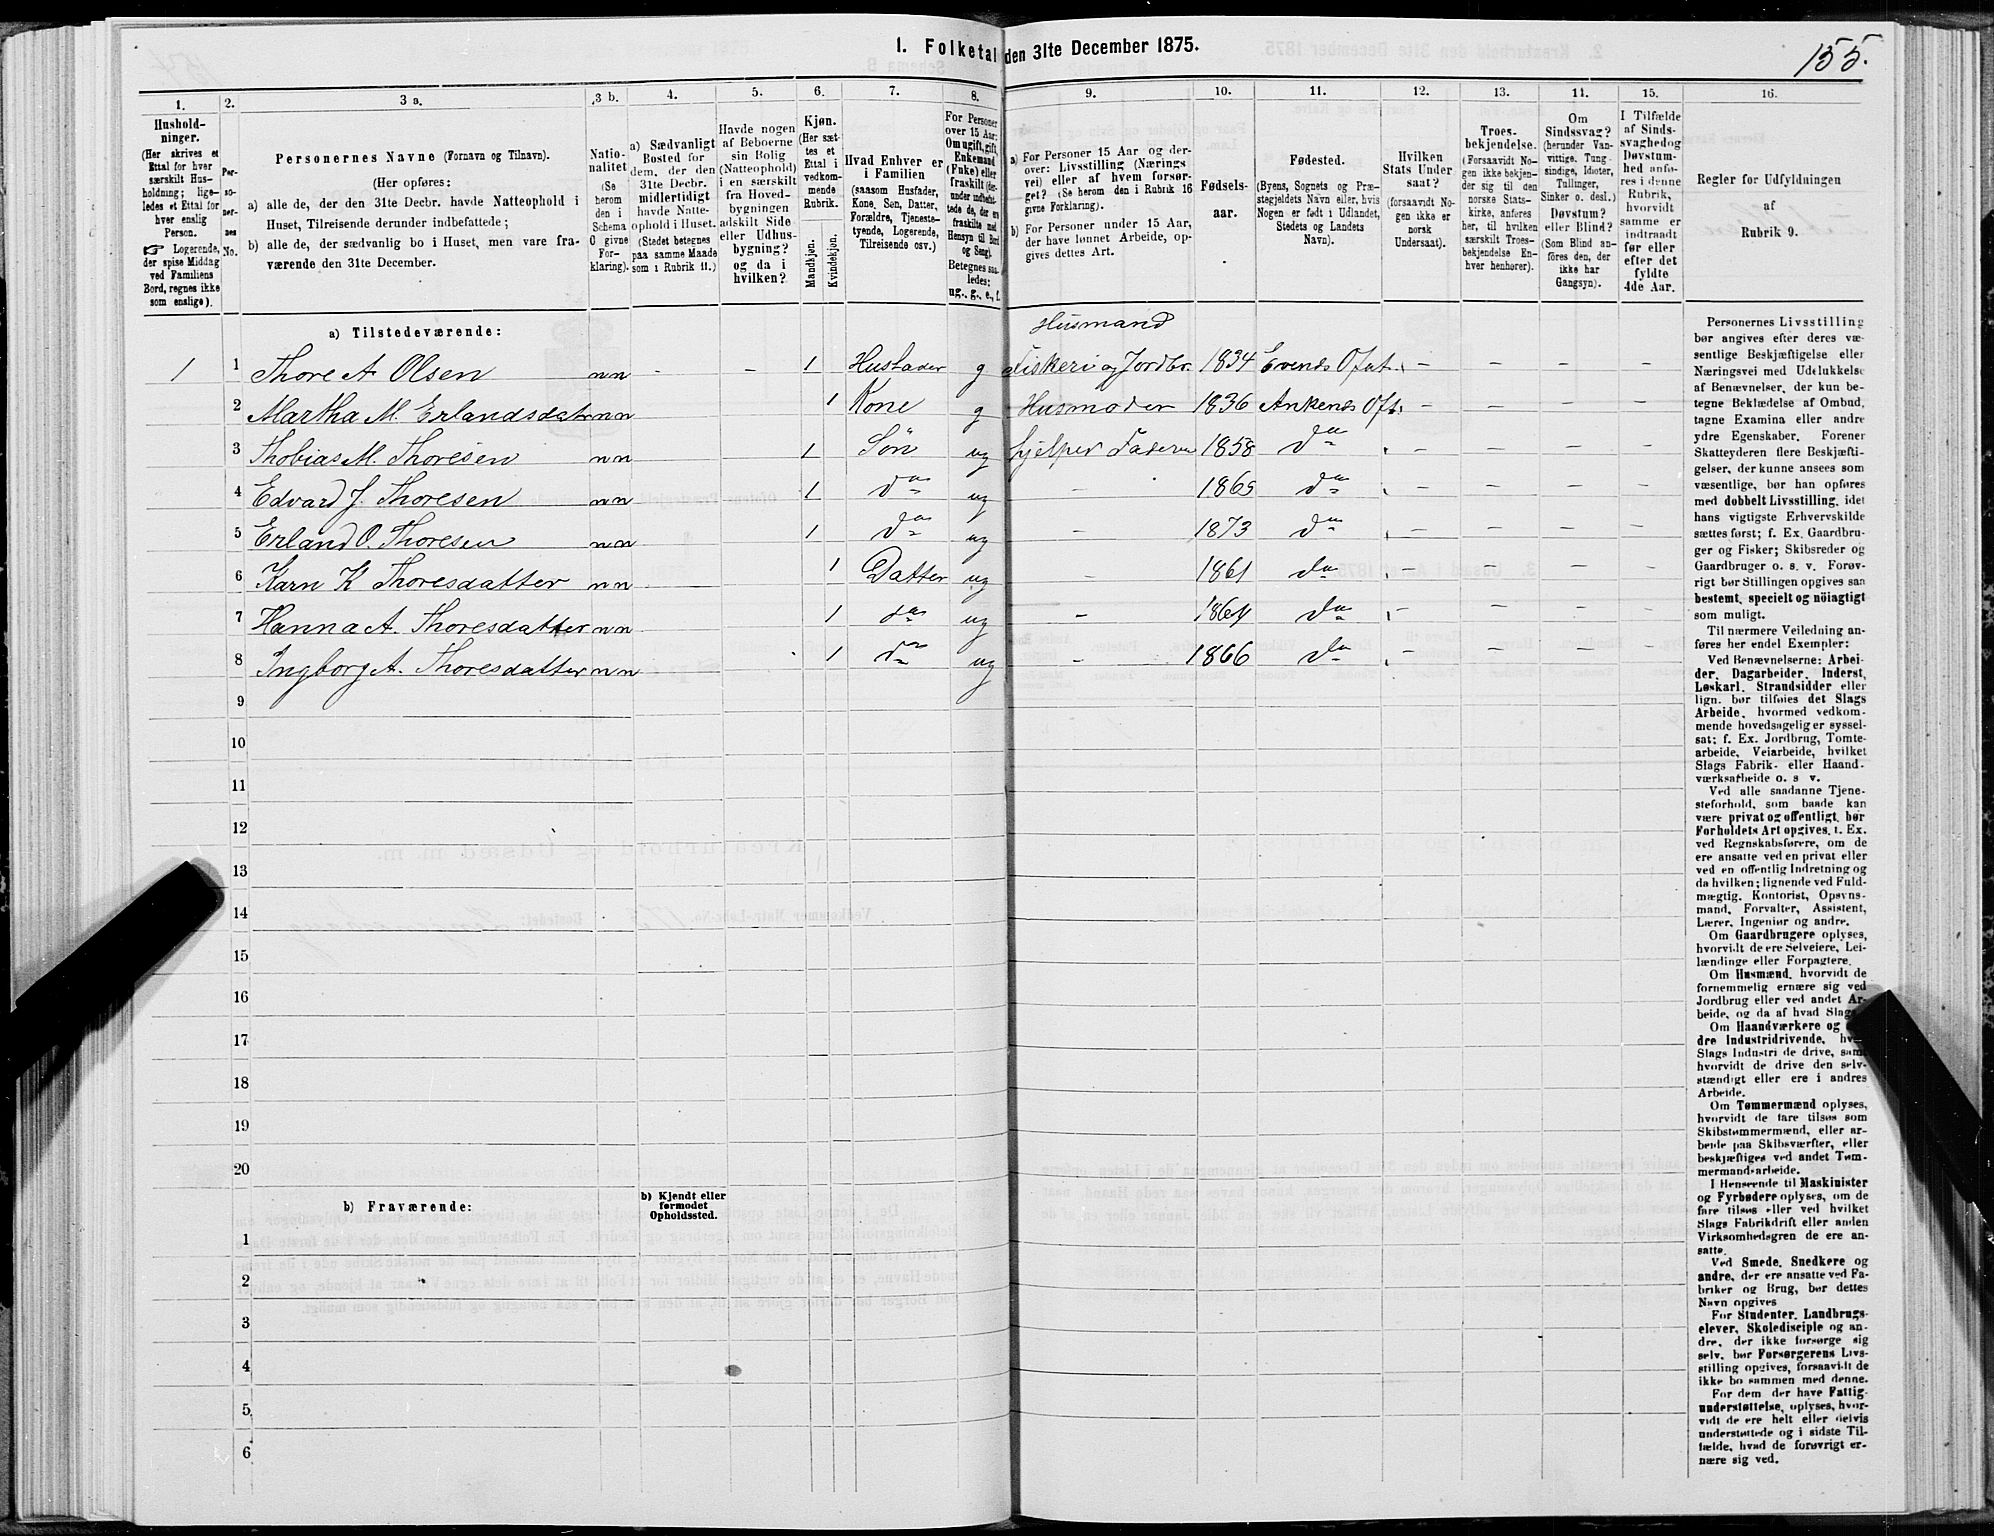 155.
1. Folketal den 31te December 1875.
1. 2. 3 a. 3 b. 4. 5. 6. 7. 8. 9. 10. 11. 12. 13. 11. 15. 16.
Husholdninger.
(Her skrives et
Ettal for hver
særskilt Husholdning;
ligeledes et Ettal for
hver enslig
Person.
Logerende,
der spise Middag
ved Familiens
Bord, regnes ikke
som enslige).
Personernes No.
Personernes Navne (Fornavn og Tilnavn).
(Her opføres:
a) alle de, der den 31te Decbr. havde Natteophold i
Huset, Tilreisende derunder indbefattede;
b) alle de, der sædvanlig bo i Huset, men vare fraværende
den 31te December.
Nationalitet
(Se
herom
den i
Schema
C givne
Forklaring).
a) Sædvanligt
Bosted for
dem, der den
31te Decbr.
midlertidigt
havde Natteophold
i Huset.
(Stedet betegnes
paa samme Maade
som i Rubrik 11.)
Havde nogen
af Beboerne
sin Bolig
(Natteophold)
i en særskilt
fra Hovedbygningen
adskilt Side-
eller Udhusbygning?
og da i
hvilken?
Kjøn.
(Her sættes
et
Ettal i
vedkommende
Rubrik.
Mandkjøn.
Kvindekjøn.
Hvad Enhver er
i Familien
(saasom Husfader,
Kone, Søn, Datter,
Forældre, Tjenestetyende,
Logerende,
Tilreisende osv.)
For Personer
over 15 Aar:
Om ugift, gift,
Enkemand
(Enke) eller
fraskilt
Betegnes saaledes:
ug., g., e., f.
a) For Personer 15 Aar og derover:
Livsstilling (Næringsvei)
eller af hvem forsørget?
(Se herom i Rubrik 16
givne Forklaring).
b) For Personer under 15 Aar,
der have lønnet Arbeide, opgives
dettes Art.
Fødselsaar.
Fødested.
(Byens, Sognets og Præstegjeldets
Navn eller, hvis
Nogen er født i Udlandet,
Stedets og Landets
Navn).
Hvilken
Stats Undersaat?
(forsaavidt Nogen
ikke er
norsk
Undersaat).
Troesbekjendelse.
(Forsaavidt Nogen
ikke bekjender
sig til den
norske Statskirke,
anføres
her, til hvilken
særskilt Troesbekjendelse
Enhver
henhører).
Om
Sindssvag?
(herunder Vanvittige,
Tungsindige,
Idioter,
Tullinger,
Sinker o. desl.)
Døvstum?
eller Blind?
(Som Blind anføres
den, der
ikke har
Gangsyn).
I Tilfælde
af Sindssvaghed
og
Døvstumhed
anføres
i denne
Rubrik,
hvorvidt
samme er
indtraadt
før eller
efter det
fyldte
4de Aar.
Regler for Udfyldningen
af
Rubrik 9.
a) Tilstedeværende:
Husmand
1 1 Thore A Olsen nn - - 1 Husfader g Fiskeri og Jordbr. 1834 Evenes Ofot. - - - -
2 Martha M. Erlandsdatr nn 1 Kone g Husmoder 1836 Ankenes Oft. - - - -
3 Thobias M. Thoresen nn 1 Søn ug hjelper Faderen 1858 do - - - -
4 Edvard J. Thoresen nn 1 do ug - 1869 do - - - -
5 Erland O. Thoresen nn 1 do ug - 1873 do - - - -
6 Karn K Thoresdatter nn 1 Datter ug - 1861 do - - - -
7 Hanna A. Thoresdatter nn 1 do ug - 1864 do - - - -
8 Ingborg A. Thoresdatter nn 1 do ug - 1866 do - - - -
9
10
11
12
13
14
15
16
17
18
19
20
b) Fraværende:
b) Kjendt eller
formodet
Opholdssted.
1
2
3
4
5
6
Personernes Livsstilling
bør angives efter deres væsentlige
Beskjæftigelse eller
Næringsvei med Udelukkelse
af Benævnelser, der kun betegne
Beklædelse af Ombud,
tagne Examina eller andre
ydre Egenskaber. Forener
Skatteyderen flere Beskjæftigelser,
der kunne ansees som
væsentlige, bør han opføres
med dobbelt Livsstilling, idet
hans vigtigste Erhvervskilde
sættes først; f. Ex. Gaardbruger
og Fisker; Skibsreder og
Gaardbruger o. s. v. Forøvrigt
bør Stillingen opgives saa
bestemt, specielt og nöiagtigt
som muligt.
Til nærmere Veiledning anføres
her endel Exempler:
Ved Benævnelserne: Arbeider,
Dagarbeider, Inderst,
Løskarl, Strandsidder eller
lign. bør tilføies det Slags
Arbeide, hvormed vedkommende
hovedsagelig er sysselsat;
f. Ex. Jordbrug, Tomtearbeide,
Veiarbeide, hvilket
Slags Fabrik- eller Haandværksarbeide
o. s. v.
Ved alle saadanne Tjenesteforhold,
som baade kan
være privat og offentligt, bør
Forholdets Art opgives, t. Ex.
ved Regnskabsførere, om de
ere ansatte ved en privat eller
ved en offentlig Indretning og
da hvilken; lignende ved Fuldmægtig,
Kontorist, Opsynsmand,
Forvalter, Assistent,
Lærer, Ingeniør og andre.
Om Gaardbrugere oplyses,
hvorvidt de ere Selveiere, Leilændinge
eller Forpagtere.
Om Husmænd, hvorvidt de
fornemmelig ernære sig ved
Jordbrug eller ved andet Arbeide,
og da af hvad Slags.
Om Haandværkere og
dre Industridrivende,
Slags Industri de drive, samt
hvorvidt de drive den selvstændigt
eller ere i andres
Arbeide.
Om Tømmermænd oplyses,
hvorvidt de fare tilsøs som
Skibstømmermænd, eller arbeide
paa Skibsværfter, eller
beskjæftiges ved andet Tømmermandsarbeide.
I Henseende til Maskinister
og Fyrbødere oplyses, om de
fare tilsøs eller ved hvilket
Slags Fabrikdrift eller anden
Virksomhedsgren de ere ansatte.
Ved Smede, Snedkere og
andre, der ere ansatte ved Fabriker
og Brug, bør dettes
Navn opgives
For Studenter, Landbrugselever,
Skoledisciple og andre,
der ikke forsørge sig
selv, bør Forsørgerens Livsstilling
opgives, forsaavidt de
ikke bo sammen med denne.
For dem, der have Fattigunderstøttelse,
oplyses, hvorvidt
de ere helt eller delvis
understøttede og i sidste Tilfælde,
hvad de forøvrigt ernære
sig ved.